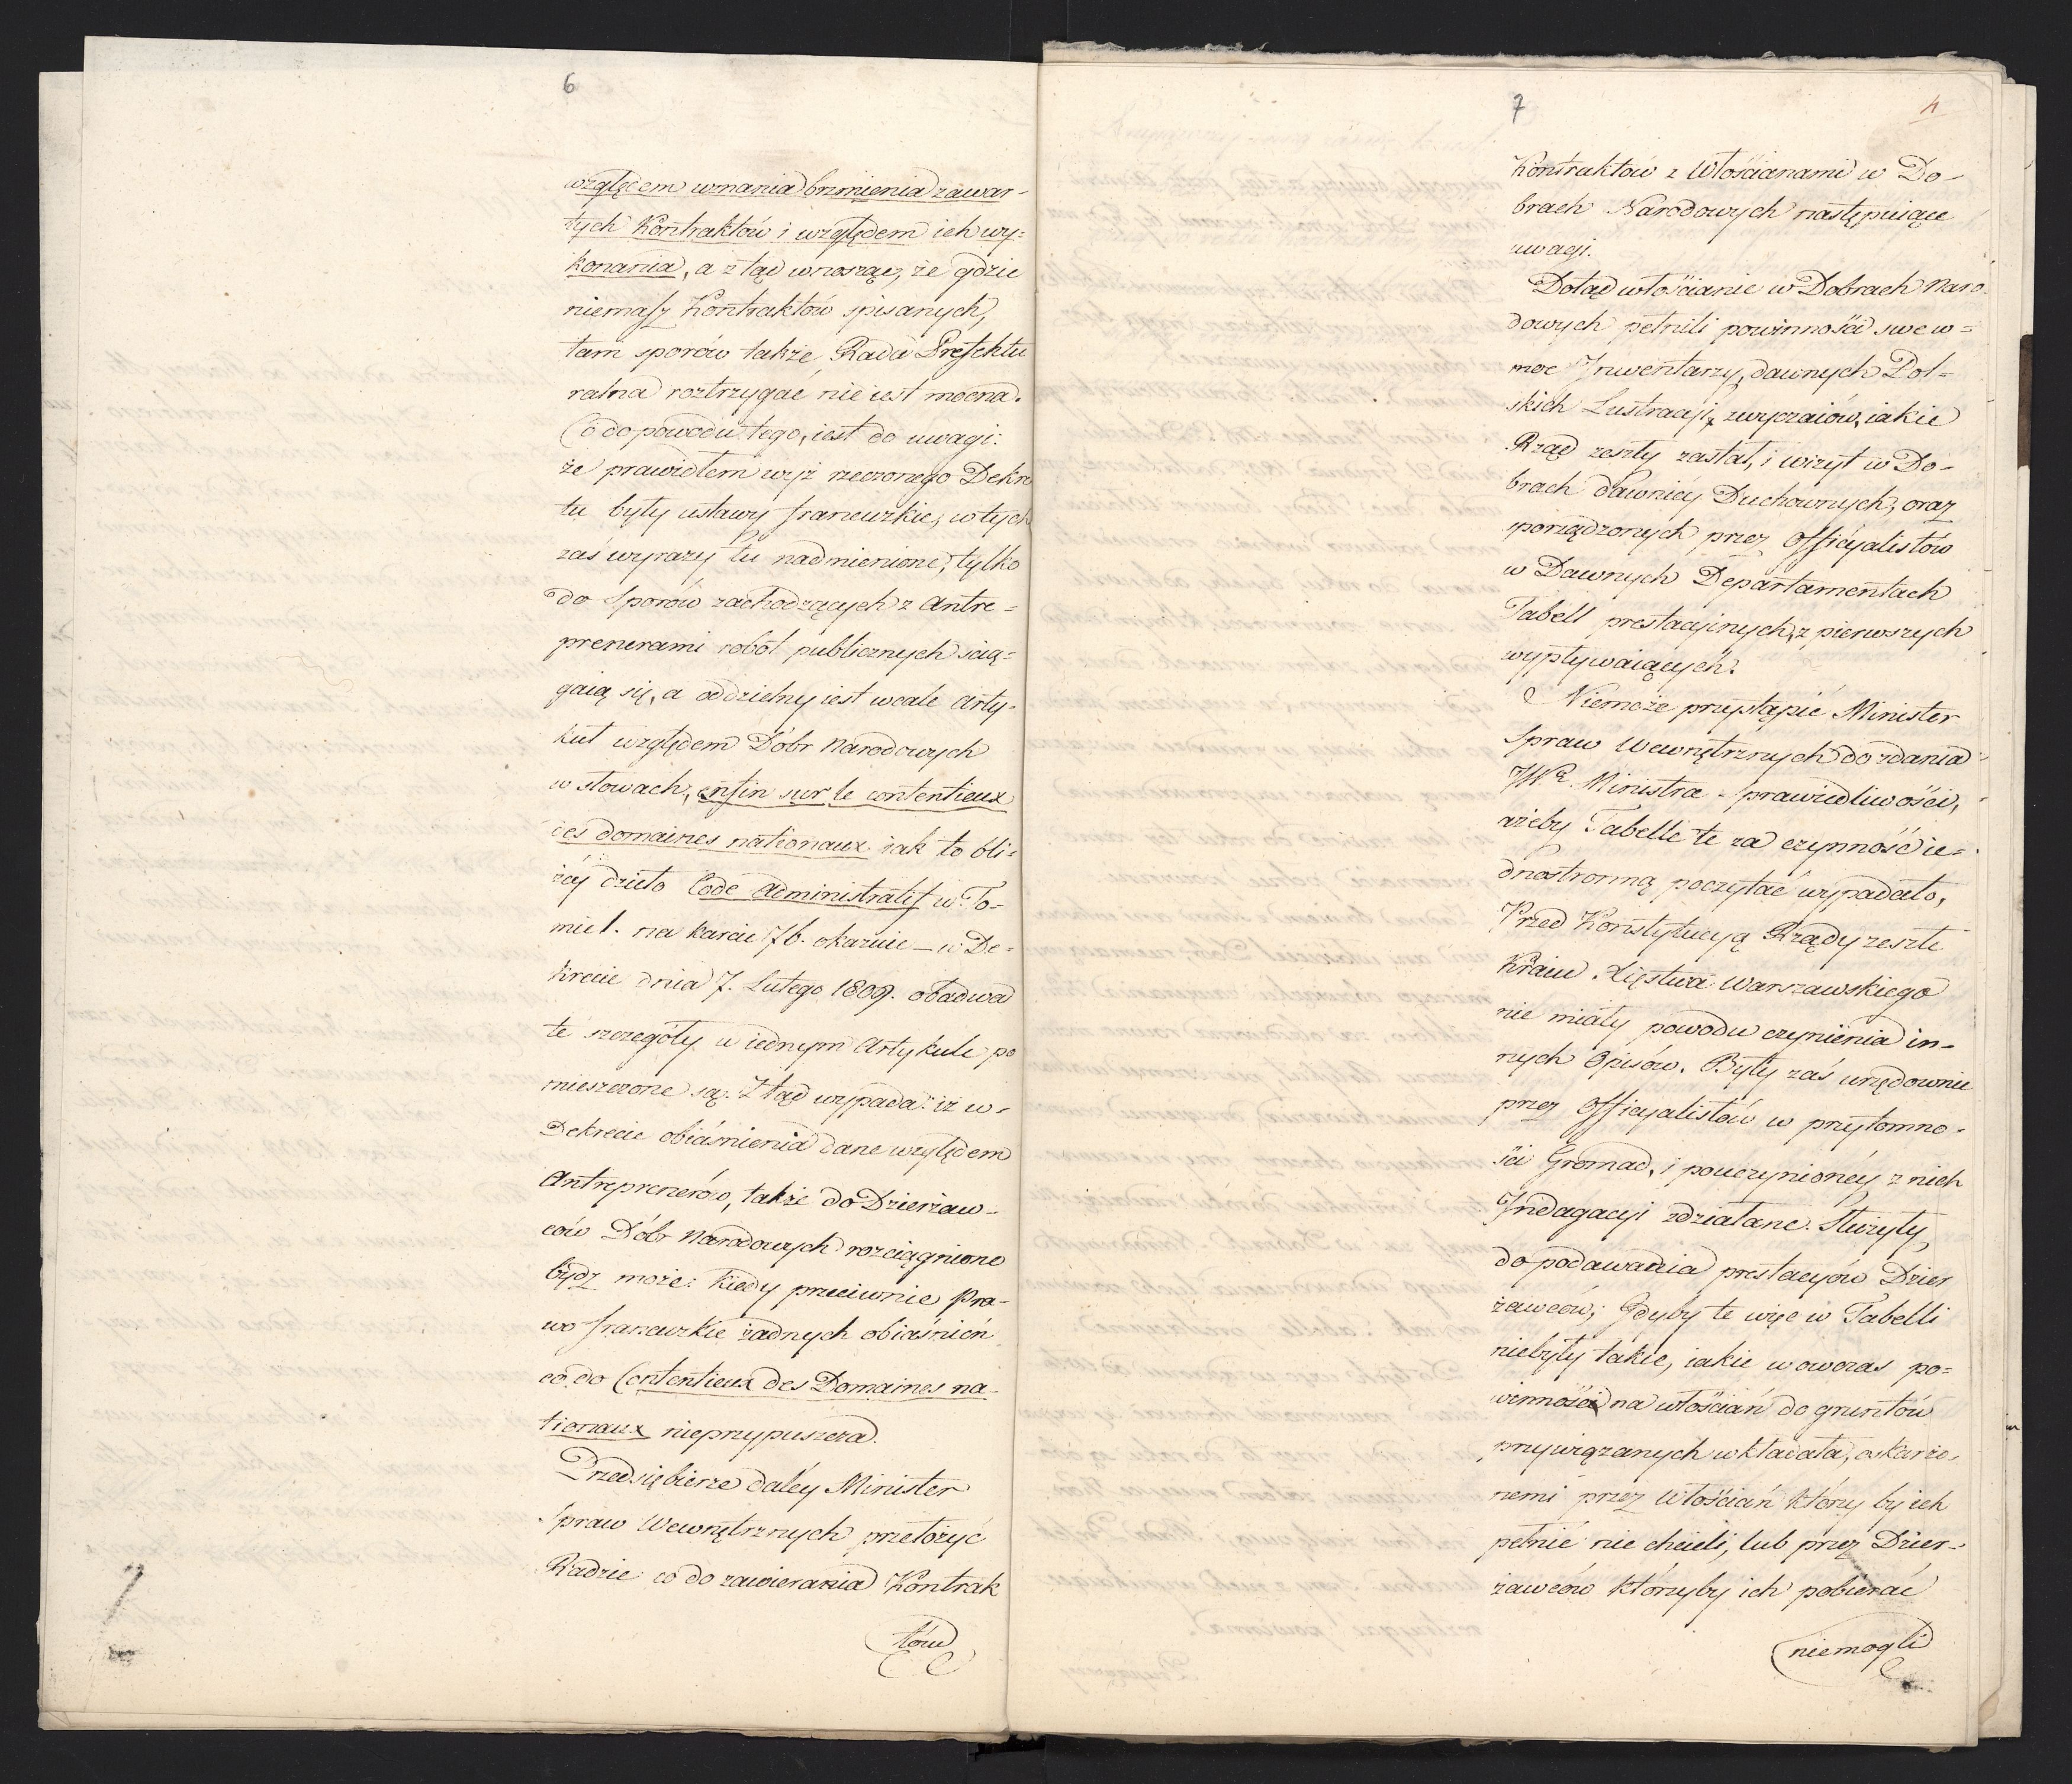 6
względem uznania brzmienia zawar-
tych Kontraktów i względem ich wy=
konania, a ztąd wnosząc, że gdzie
niemasz Kontraktów spisanych,
tam sporów także, Rada Prefektu
ralna roztrzygać nie iest mocna.
Co do powodu tego, iest do uwagi:
że prawidłem wyż rzeczonego Dekre
tu były ustawy francuzkie, w tych
zaś wyrazy tu nadmienione, tylko
do Sporów zachodzących z Antre=
prenerami robot publicznych ścią=
gaią się, a oddzielny iest wcale Arty-
kuł względem Dóbr Narodowych
w słowach, enfin sur le contentieux
des domaines nationaux iak to bli=
żéy dzieło Code Administratif w To=
mie 1. na karcie 76. okazuie – w De=
krecie dnia 7. Lutego 1809. obadwa
te szczegóły w iednym Artykule po
mieszczone są. Ztąd wypada: iż w-
Dekrecie obiaśnienia dane względem
Antreprenerów, także do Dzierżaw-
ców Dóbr Narodowych rozciągnione
bydź może: kiedy przeciwnie Pra-
wo francuzkie żadnych obiaśnień
co do Contentieux des Domaines na-
tionaux nieprzypuszcza.
Przedsiębierze daléy Minister
Spraw Wewnętrznych przełożyć
Radzie co do zawierania Kontrak
tów
7
4
Kontraktów z Włościanami w Do-
brach Narodowych następuiące
uwagi.
Dotąd włościanie w Dobrach Naro-
dowych pełnili powinności swe w=
moc Inwentarzy, dawnych Pol=
skich Lustracyi, zwyczaiów, iakie
Rząd zeszły zastał, i wizyt w Do-
brach dawniéy Duchownych, oraz
sporządzonych przez Officyalistów
w Dawnych Departamentach
Tabell prestacyinych, z pierwszych
wypływaiących.
Niemoże przystąpić Minister
Spraw Wewnętrznych do zdania
JWo Ministra Sprawiedliwości,
ażeby Tabelle te za czynność ie=
dnostronną poczytać wypadało,
Przed Konstytucyą Rządy zeszłe
Kraiu Xięstwa Warszawskiego
nie miały powodu czynienia in-
nych Opisów. Były zaś urzędownie
przez Officyalistów w przytomno-
ści Gromad, i pouczynionéy z nich
Indagacyi zdziałane. Służyły,
do podawania prestacyów Dzier
żawców; Gdyby te więc w Tabelli
niebyły takie, iakie wowczas po=
winności na włościan do gruntów
przywiązanych wkładała, oskarżo-
nemi przez Włościan którzy by ich
pełnić nie chcieli, lub przez Dzier-
żawców którzyby ich pobierać
niemogli